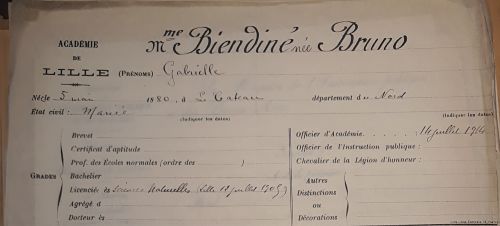 ACADÉMIE
DE
LILLE
Mme Biendiné née Bruno
(PRÉNOMS) Gabrielle
Né le 5 mai 1880, à Le Cateau département du Nord
(Indiquer les dates) (Indiquer les dates)
État civil : Mariée
GRADES
Brevet
Certificat d'aptitude
Prof. des Écoles normales (ordre des )
Bachelier
Licenciée ès Sciences Naturelles (Lille juillet 1905)
Agrégé d
Docteur ès
Officier d'Académie. 14 juillet 1914
Officier de l'Instruction publique :
Chevalier de la Légion d'honneur :
Autres
Distinctions
ou
Décorations